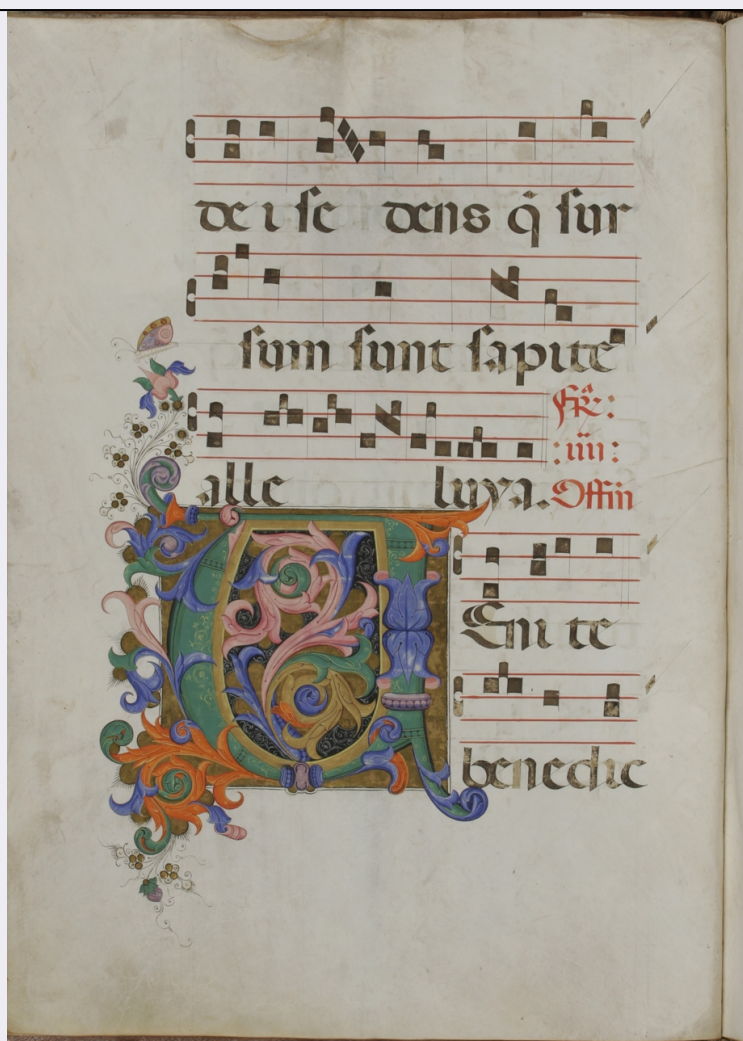 de i se dens q̄ sur
sum sunt sapite
alle luya. Fr̄:
:iiii:
Offin
Eni te
benedic